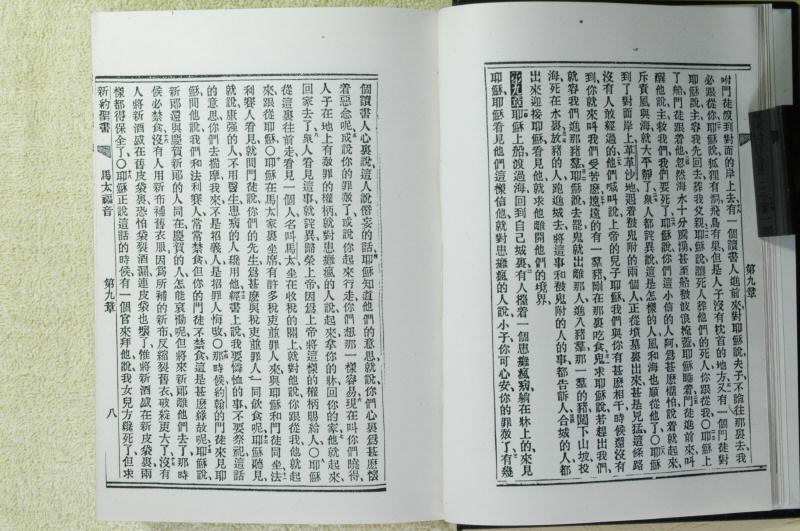 第九章
咐門徒渡到對面的岸上去有一個讀書人進前來對耶穌說夫子不論往那裏去我
必跟你去耶穌說狐狸有洞飛鳥有巢但是人子沒有枕首的地方又有一個門徒對
耶穌說主容我先回去葬我父親耶穌說讓死人葬他們的死人你跟從我〇耶穌上
了船門徒跟着他忽然海水十分騰湧甚至船被波浪掩蓋耶穌睡着門徒進前來叫
醒他說主救我們我們要死了耶穌說你們這小信的人阿爲甚麼懼怕說着就起來
斥責風與海就大平靜了衆人都詫異說這是怎樣的人風和海也順從他了〇耶穌
到了對面岸上革革沙地遇着被鬼附的兩個人正從墳墓裏出來甚是兇猛這條路
沒有人敢經過的他們喊叫說上帝的兒子耶穌我們與你有甚麼相干時候還沒有
到你就來叫我們受苦麼遠遠的有一羣豬剛在那裏吃食鬼求耶穌說若趕出我們
就容我們進那豬羣耶穌說去罷鬼就出離那人進入豬羣那一羣的豬闖下山坡投
海死在水裏放豬的人跑進城去將這事和被鬼附的人的事都告訴人合城的人都
出來迎接耶穌看見他就求他離開他們的境界
第九章耶穌上船渡過海回到自己城裏有人擡着一個患癱瘋病躺在牀上的來見
耶穌耶穌看見他們這樣信他就對患癱瘋的人說小子你可心安你的罪赦了有幾
個讀書人心裏說這人說僭妄的話耶穌知道他們的意思就說你們心裏爲甚麼懷
着惡念呢或說你的罪赦了或說你起來行走你們想那一樣容易現在叫你們曉得
人子在地上有赦罪的權柄就對患癱瘋的人說起來拿你的牀回你的家他就起來
回家去了衆人看見這事就詫異歸榮上帝因爲上帝將這樣的權柄賜給人〇耶穌
從這裏往前走看見一個人名叫馬太坐在收稅的關上就對他說你跟從我他就起
來跟從耶穌〇耶穌在馬太家裏坐席有許多稅吏並罪人來與耶穌和門徒同坐法
利賽人看見就問門徒說你們的先生爲甚麼與稅吏並罪人一同飲食呢耶穌聽見
就說康强的人不用醫生患病的人纔用他經書上說我要憐恤的事不要祭祀這話
的意思你們去揣摩我來不是招義人是招罪人悔改〇那時候約翰的門徒來見耶
穌問他說我們和法利賽人常常禁食但你的門徒不禁食這是甚麼緣故呢耶穌說
新郎還與慶賀新郎的人同在慶賀的人怎能哀慟呢但將來新郎離他們去了那時
候必禁食沒有人用新布補舊衣服因爲所補的新布反縮裂舊衣破綻更大了沒有
人將新酒盛在舊皮袋裏恐怕袋裂酒漏連皮袋也壞了惟將新酒盛在新皮袋裏兩
樣都得保全了〇耶穌正說這話的時候有一個官來拜他說我女兒方纔死了但求
新約聖書 馬太福音 第九章 八